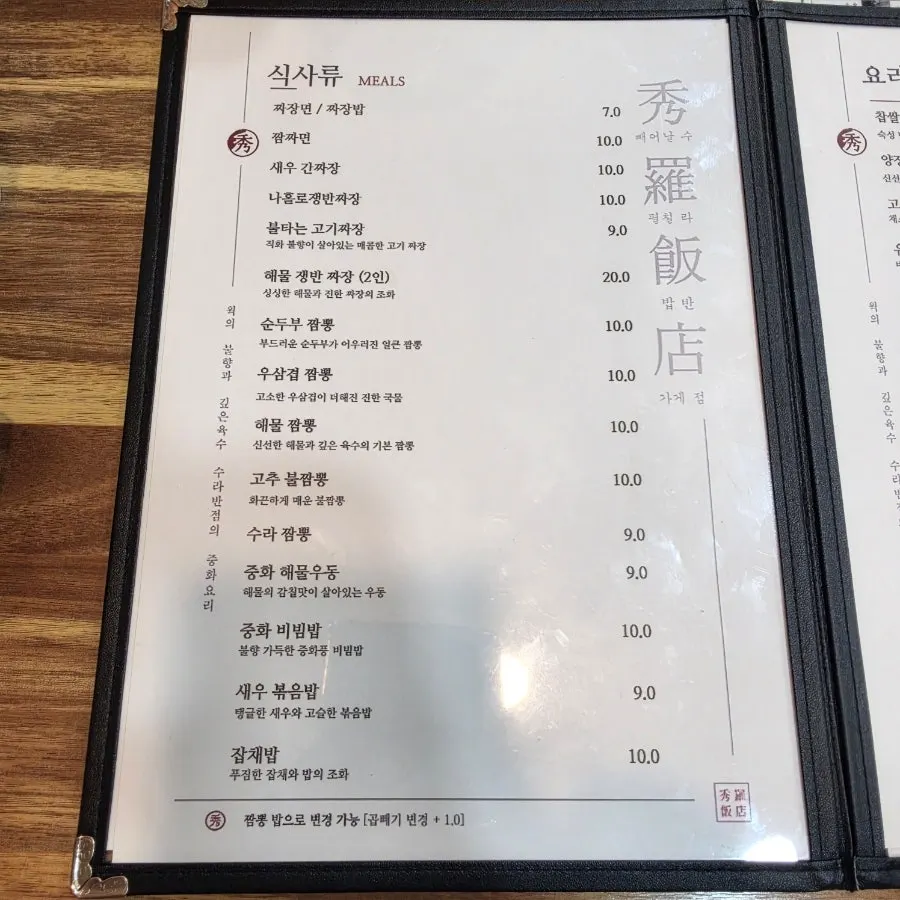 식사류 MEALS
짜장면 / 짜장밥 7.0
짬짜면 10.0
새우 간짜장 10.0
나홀로쟁반짜장 10.0
불타는 고기짜장 9.0
직화 불향이 살아있는 매콤한 고기 짜장
해물 쟁반 짜장 (2인) 20.0
싱싱한 해물과 진한 짜장의 조화
순두부 짬뽕 10.0
부드러운 순두부가 어우러진 얼큰 짬뽕
우삼겹 짬뽕 10.0
고소한 우삼겹이 더해진 진한 국물
해물 짬뽕 10.0
신선한 해물과 깊은 육수의 기본 짬뽕
고추 불짬뽕 10.0
화끈하게 매운 불짬뽕
수라 짬뽕 9.0
중화 해물우동 9.0
해물의 감칠맛이 살아있는 우동
중화 비빔밥 10.0
불향 가득한 중화풍 비빔밥
새우 볶음밥 9.0
탱글한 새우와 고슬한 볶음밥
잡채밥 10.0
푸짐한 잡채와 밥의 조화
秀 짬뽕 밥으로 변경 가능 [곱빼기 변경 + 1.0]
秀
웍의 불향과 깊은육수 수라반점의 중화요리
秀
빼어날 수
羅
펼칠 라
飯
밥 반
店
가게 점
秀羅
飯店
요리
秀
찹쌀
숙성
신선
고
웍의 불향과 깊은육수